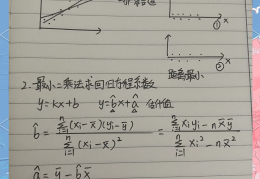 x
①
x
②
距离最小
2. 最小二乘法求回归方程系数
y=kx+b  y=b̂x+â 估计值
b̂ = \frac{\sum_{i=1}^{n}(x_i-x̄)(y_i-ȳ)}{\sum_{i=1}^{n}(x_i-x̄)^2} = \frac{\sum_{i=1}^{n}x_iy_i-nx̄ȳ}{\sum_{i=1}^{n}x_i^2-nx̄^2}
â = ȳ-b̂x̄